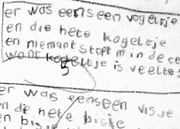 er was eens een vogeltje
en die hete kogeltje
en niemant stopt m in dese
want kogeltje is veelte
er was eens een visje
en de hete biske
en bis